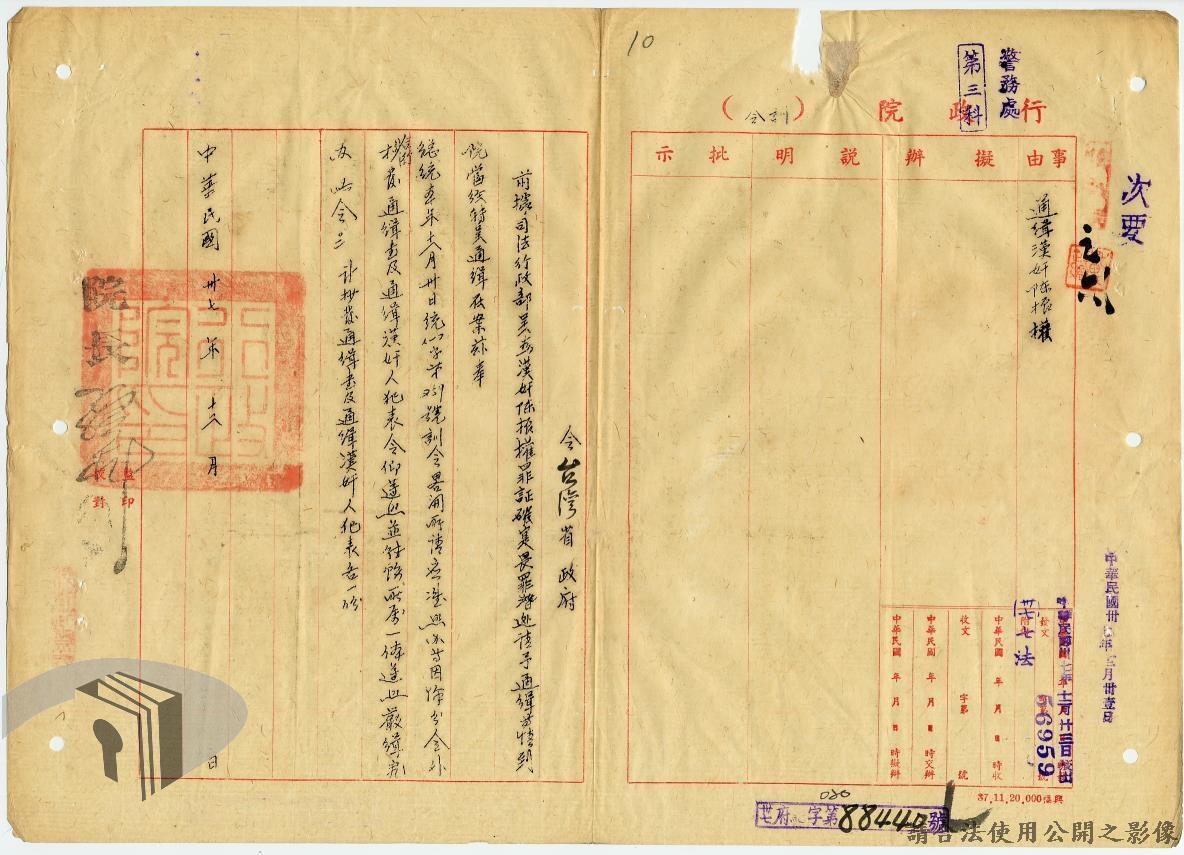 10
警務處
第三科
行政院（訓令）
事由
擬辦
說明
批示
次要
通緝漢奸陳振權
中華民國卅七年十二月廿三日發出
七法
56959
中華民國 年 月 日 時收
收文 字第 號
中華民國 年 月 日 時交辦
中華民國 年 月 日 時擬辦
37,11,20,000福興
府 字第88440號
令台灣省政府
前據司法行政部呈為漢奸陳振權罪証確實畏罪潛逃請予通緝等情到
院當經轉呈通緝在案茲奉
總統本年十一月卅日統 字第 號訓令畧開所請應準照辦等因除分令外
抄發通緝書及通緝漢奸人犯表令仰遵照並轉飭所屬一體遵照嚴緝
此令
計抄發通緝書及通緝漢奸人犯表各一份
中華民國卅七年十二月 日
院長
監印
校對
請合法使用公開之影像